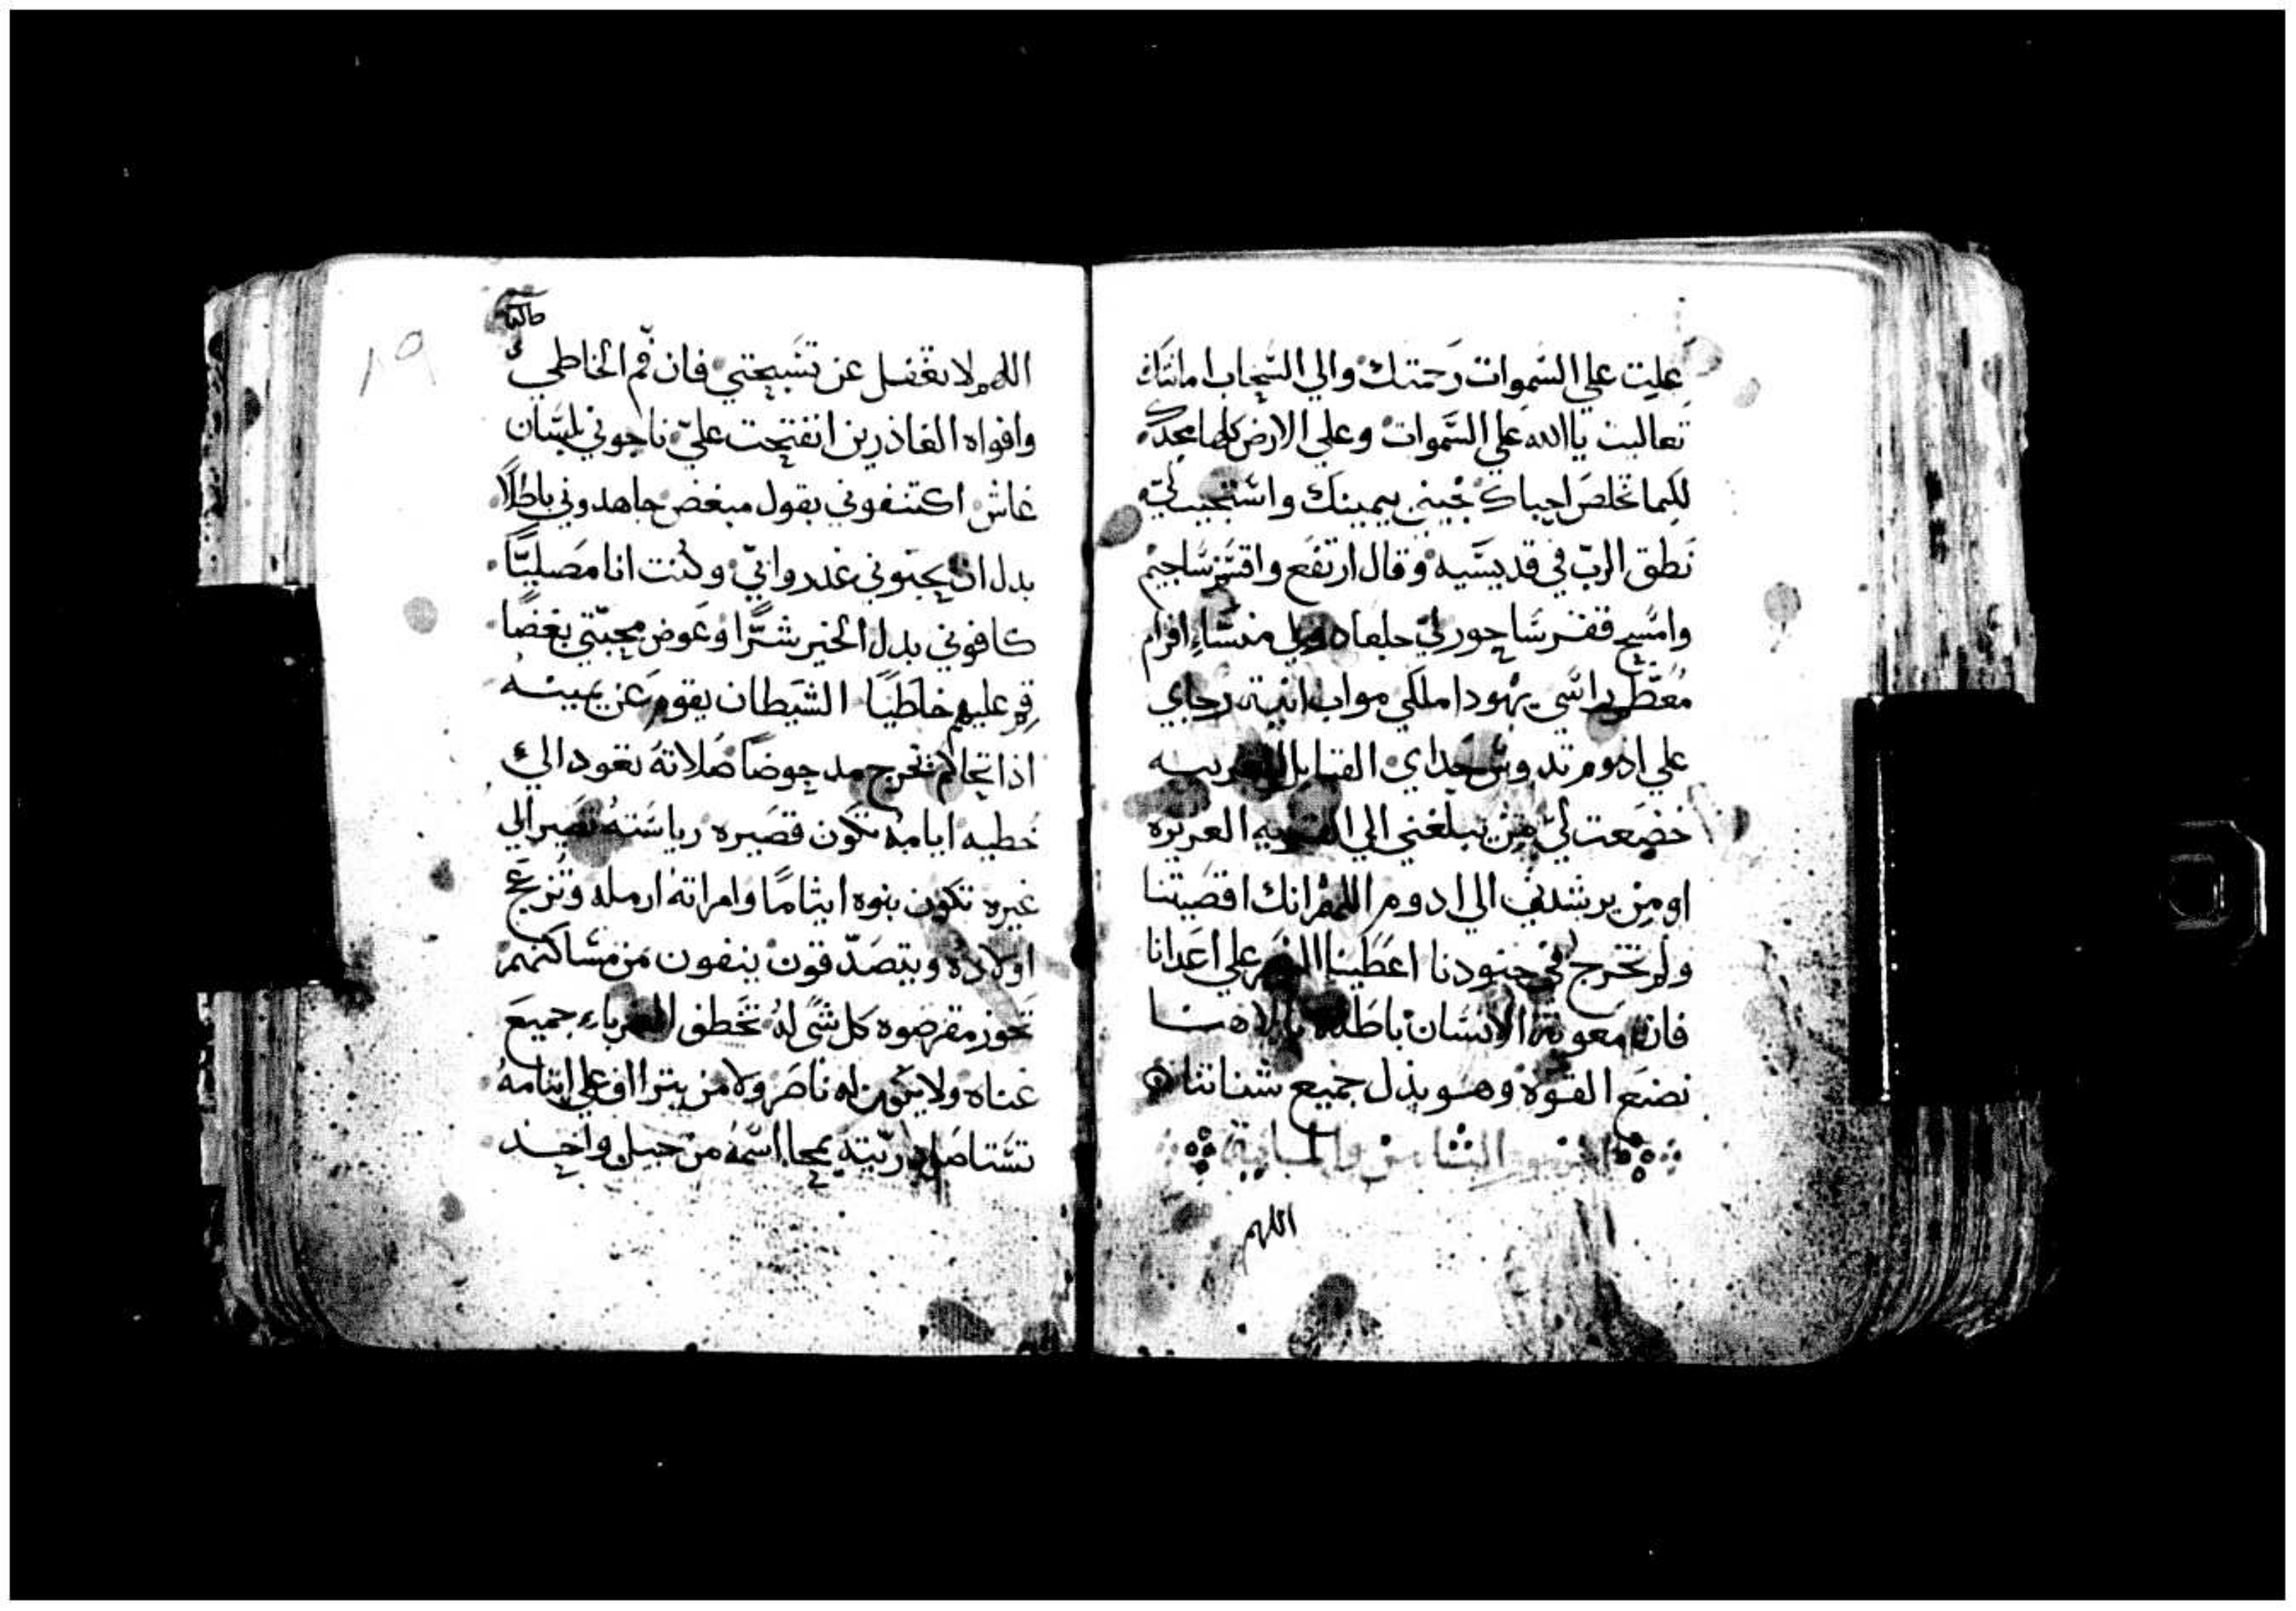 علِيت علي السَّموات رَحمتك والي السَّحاب امانتك
تعاليت ياالله علي السَّموات وعلي الارض كلها مجدك
لكيما تخلصَ احباك نجيني بيمينك واسَّتجيب لي
نَطق الربّ في قديسَّيه وقال ارتفع واقسَّم ساجيم
وامسَّح قفر سَّاحور لي جلعاد ولي منسَّا افرام
مُعَطّي راسَّي يهودا ملكي مواب انية رجاي
علي ادوم تدوس حداي القبايل الغريبه
خضعت لي من يبلغني الي القريه العزيزه
او من يرشدني الي ادوم اللهم انك اقصيتنا
ولم تخرج في جنودنا اعطينا النصر علي اعدانا
فان معونة الانسَّان باطله بالاهنا
نصنع القوه وهو يذل جميع شناتنا
المزمور الثامن والمايه
اللهم
اللهم لا تغفل عن تسَّبحتي فان فم الخاطي
وافواه الغادرين انفتحت عليّ ناجوني بلسَّان
غاش اكتنفوني بقول مبغض جاهدوني باطلًا
بدل ان يحبّوني غدروا بيّ وكنت انا مصليًّا
كافوني بدل الخير شرًّا وعوض محبّتي بغضًا
قم عليهم خاطيًا الشيطان يقوم عن يمينه
اذا تحاكم تخرج مدحوضًا صلاتهُ تعود الي
خطيه ايامهُ تكون قصيره رياسَّتهُ تصير الي
غيره تكون بنوه ايتامًا وامراتهُ ارمله وتُزعَج
اولاده ويتصَدّقون ينفون من مسَّاكنهم
تحوز مقرضوه كل شي لهُ تخطف الغرباء جميعَ
غناه ولا يكون له ناصر ولا من يتراااف علي ايتامهُ
تسَّتاصَل ذرّيته يمحا اسَّمهُ من جيل واحد